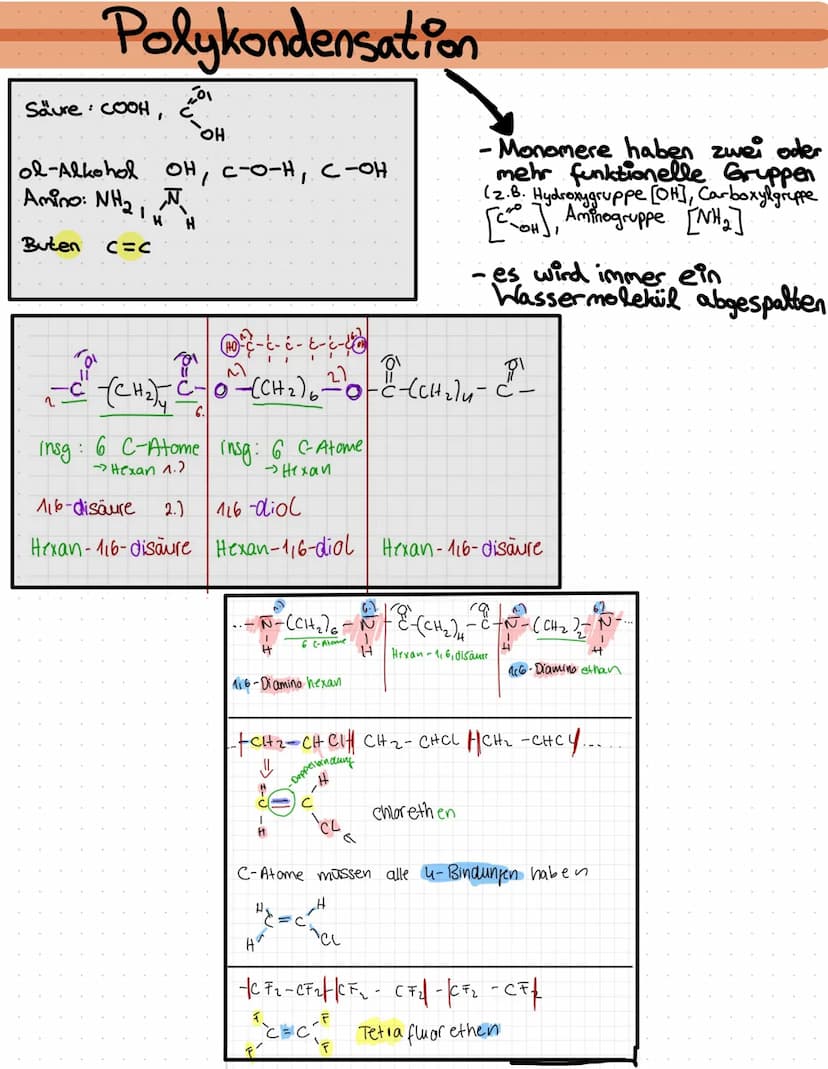 Polykondensation
Säure: COOH, C=O OH
ol-Alkohol OH, C-O-H, C-OH
Amino: NH2, N H H
Buten C=C
- Monomere haben zwei oder
mehr funktionelle Gruppen
(z.B. Hydroxygruppe [OH], Carboxylgruppe
[C=O OH], Aminogruppe [NH2]
- es wird immer ein
Wassermolekül abgespalten
HO-C-C-C-C-C-C-OH
-C-(CH2)4-C-O-(CH2)6-O-C-(CH2)4-C-
insg: 6 C-Atome
→ Hexan 1.)
1,6-disäure 2.)
Hexan-1,6-disäure
insg: 6 C-Atome
→ Hexan
1,6-diol
Hexan-1,6-diol
Hexan-1,6-disäure
...-N-(CH2)6-N-C-(CH2)4-C-N-(CH2)2-N-...
H H H H
6 C-Atome
1,6-Diamino hexan
Hexan-1,6,disäure
1,6-Diamino ethan
...+CH2-CHCl+CH2-CHCl+CH2-CHCl+...
Doppelbindung
H H
C=C
H CL
Chlorethen
C-Atome müssen alle 4-Bindungen haben
H H
C=C
H CL
+CF2-CF2+CF2-CF2+CF2-CF2+
F F
C=C
F F
Tetra fluor ethen